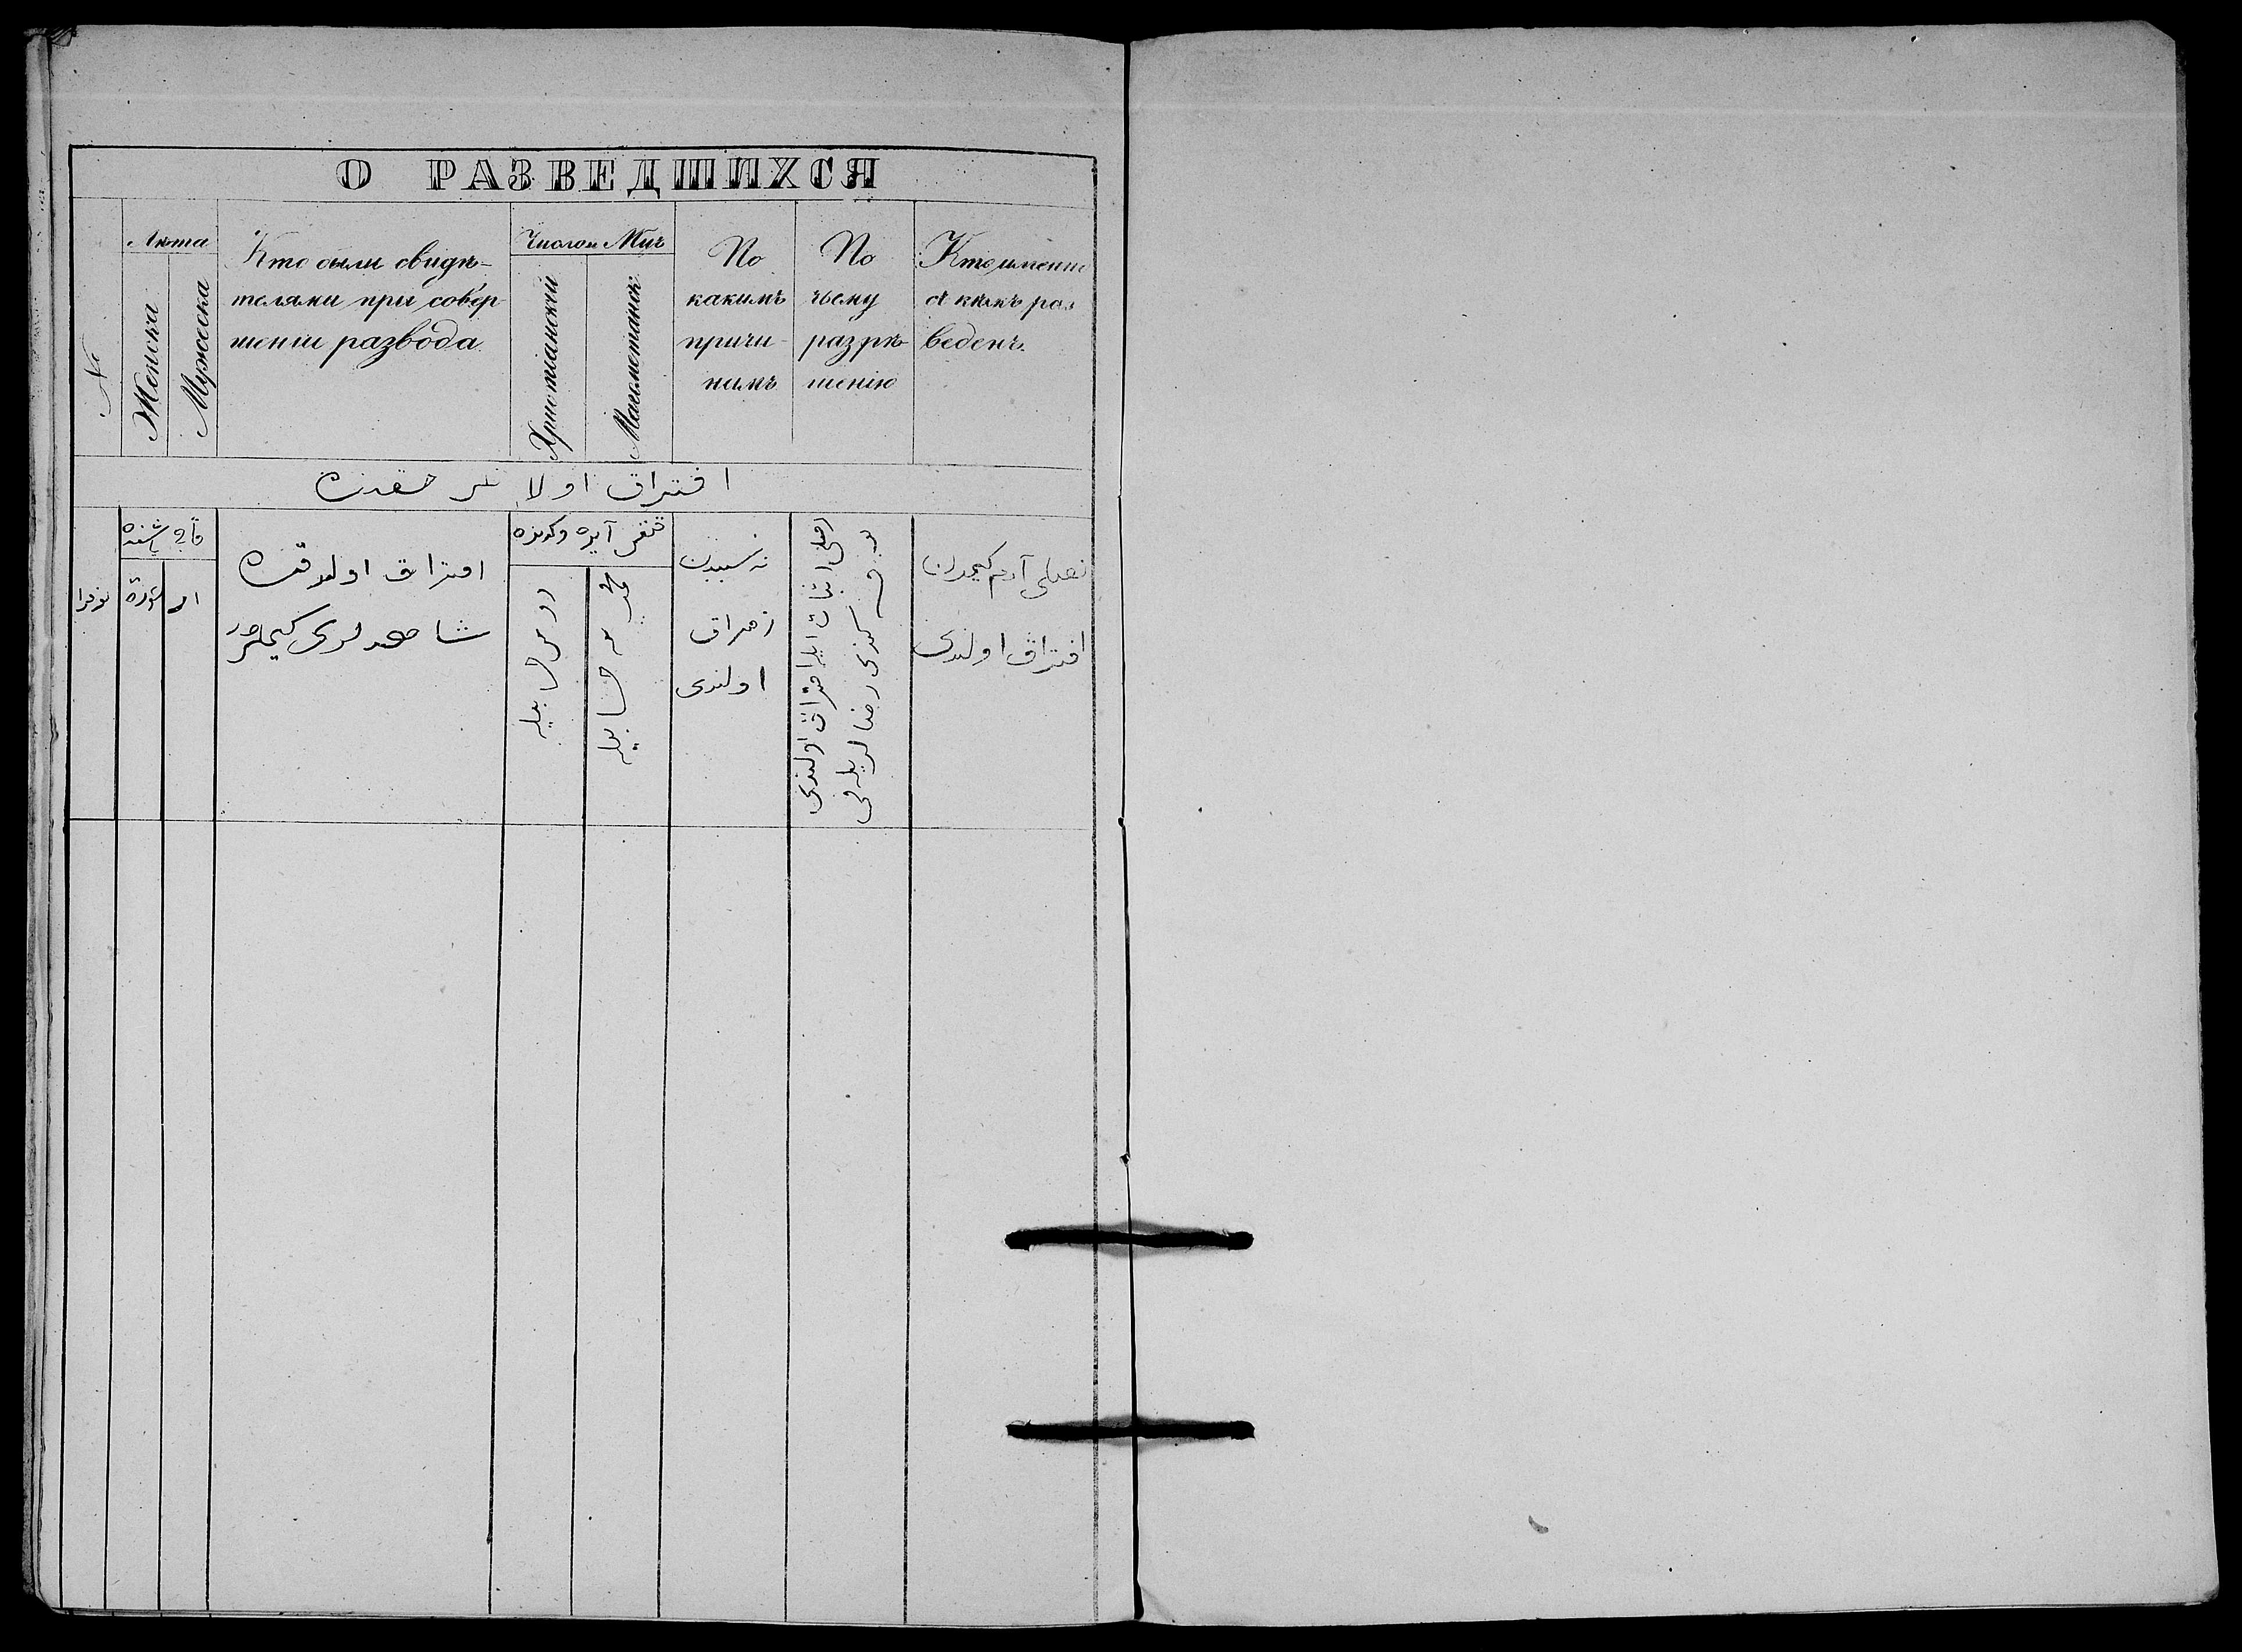 О РАЗВЕДШИХСЯ
№
Лѣта
Женска
Мужеска
Кто были свидѣ-
телями при совер
шеніи развода.
Число и Мѣс
Христіанскій
Магометанск
По
какимъ
причи-
намъ
По
чьему
разрѣ-
шенію
Кто именно
съ кѣмъ раз
веденъ.
افتراق اولانلر حقنده
قاچ یاشنده
عورت
ار
افتراق اولندقده
شاهدلری کیملردر
قنغی آیده و کونده
روس حسابیله
نه سببدن
افتراق
اولندی
افتراق اولندی